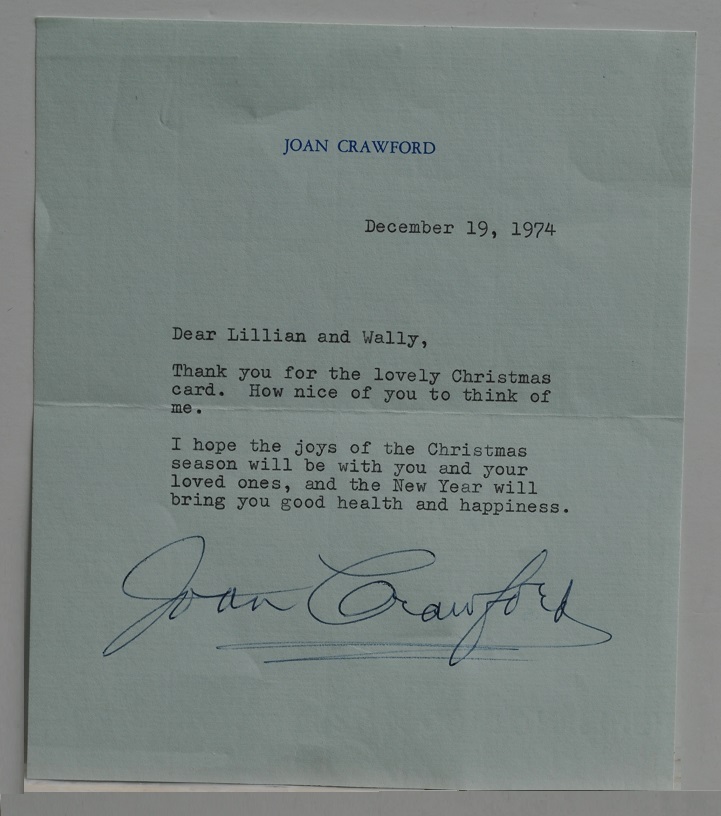 JOAN CRAWFORD
December 19, 1974
Dear Lillian and Wally,
Thank you for the lovely Christmas
card.  How nice of you to think of
me.
I hope the joys of the Christmas
season will be with you and your
loved ones, and the New Year will
bring you good health and happiness.
Joan Crawford